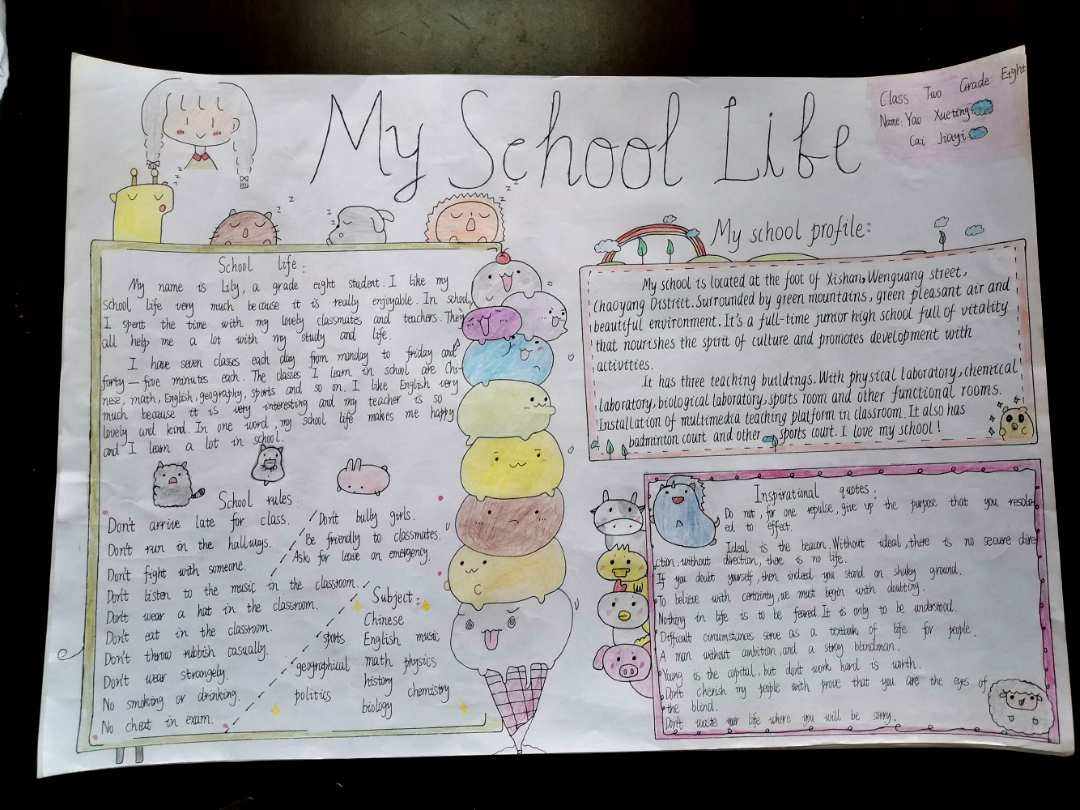 My School Life
Class Two Grade Eight
Name: Yao Xueting
Cai Jiayi
School life:
My name is Lily, a grade eight student. I like my
school life very much because it is really enjoyable. In school,
I spent the time with my lovely classmates and teachers. They
all help me a lot with my study and life.
I have seven classes each day from monday to friday and
forty-five minutes each. The classes I learn in school are Chi-
nese, math, English, geography, sports and so on. I like English very
much because it is very interesting and my teacher is so
lovely and kind. In one word, my school life makes me happy
and I learn a lot in school.
School rules
Don't arrive late for class.
Don't run in the hallways.
Don't fight with someone.
Don't listen to the music in the classroom.
Don't wear a hat in the classroom.
Don't eat in the classroom.
Don't throw rubbish casually.
Don't wear strangely.
No smoking or drinking.
No cheat in exam.
Don't bully girls.
Be friendly to classmates.
Asks for leave on emergency.
Subject:
Chinese
sports English music
geographical math physics
history
politics chemistry
biology
My school profile:
My school is located at the foot of Xishan, Wenguang street,
Chaoyang District. Surrounded by green mountains, green pleasant air and
beautiful environment. It's a full-time junior high school full of vitality
that nourishes the spirit of culture and promotes development with
activities.
It has three teaching buildings. With physical laboratory, chemical
laboratory, biological laboratory, sports room and other functional rooms.
Installation of multimedia teaching platform in classroom. It also has
badminton court and other sports court. I love my school!
Inspirational quotes:
Do not, for one repulse, give up the purpose that you resolv-
ed to effect.
Ideal is the beacon. Without ideal, there is no secure dire-
ction, without direction, there is no life.
If you doubt yourself, then indeed you stand on shaky ground.
To believe with certainty, we must begin with doubting.
Nothing in life is to be feared. It is only to be understood.
Difficult circumstances serve as a textbook of life for people.
A man without ambition, and a stray blindman.
Young is the capital, but don't work hard is worth.
Don't cherish my people with prove that you are the eyes of
the blind.
Don't waste your life where you will be sorry.